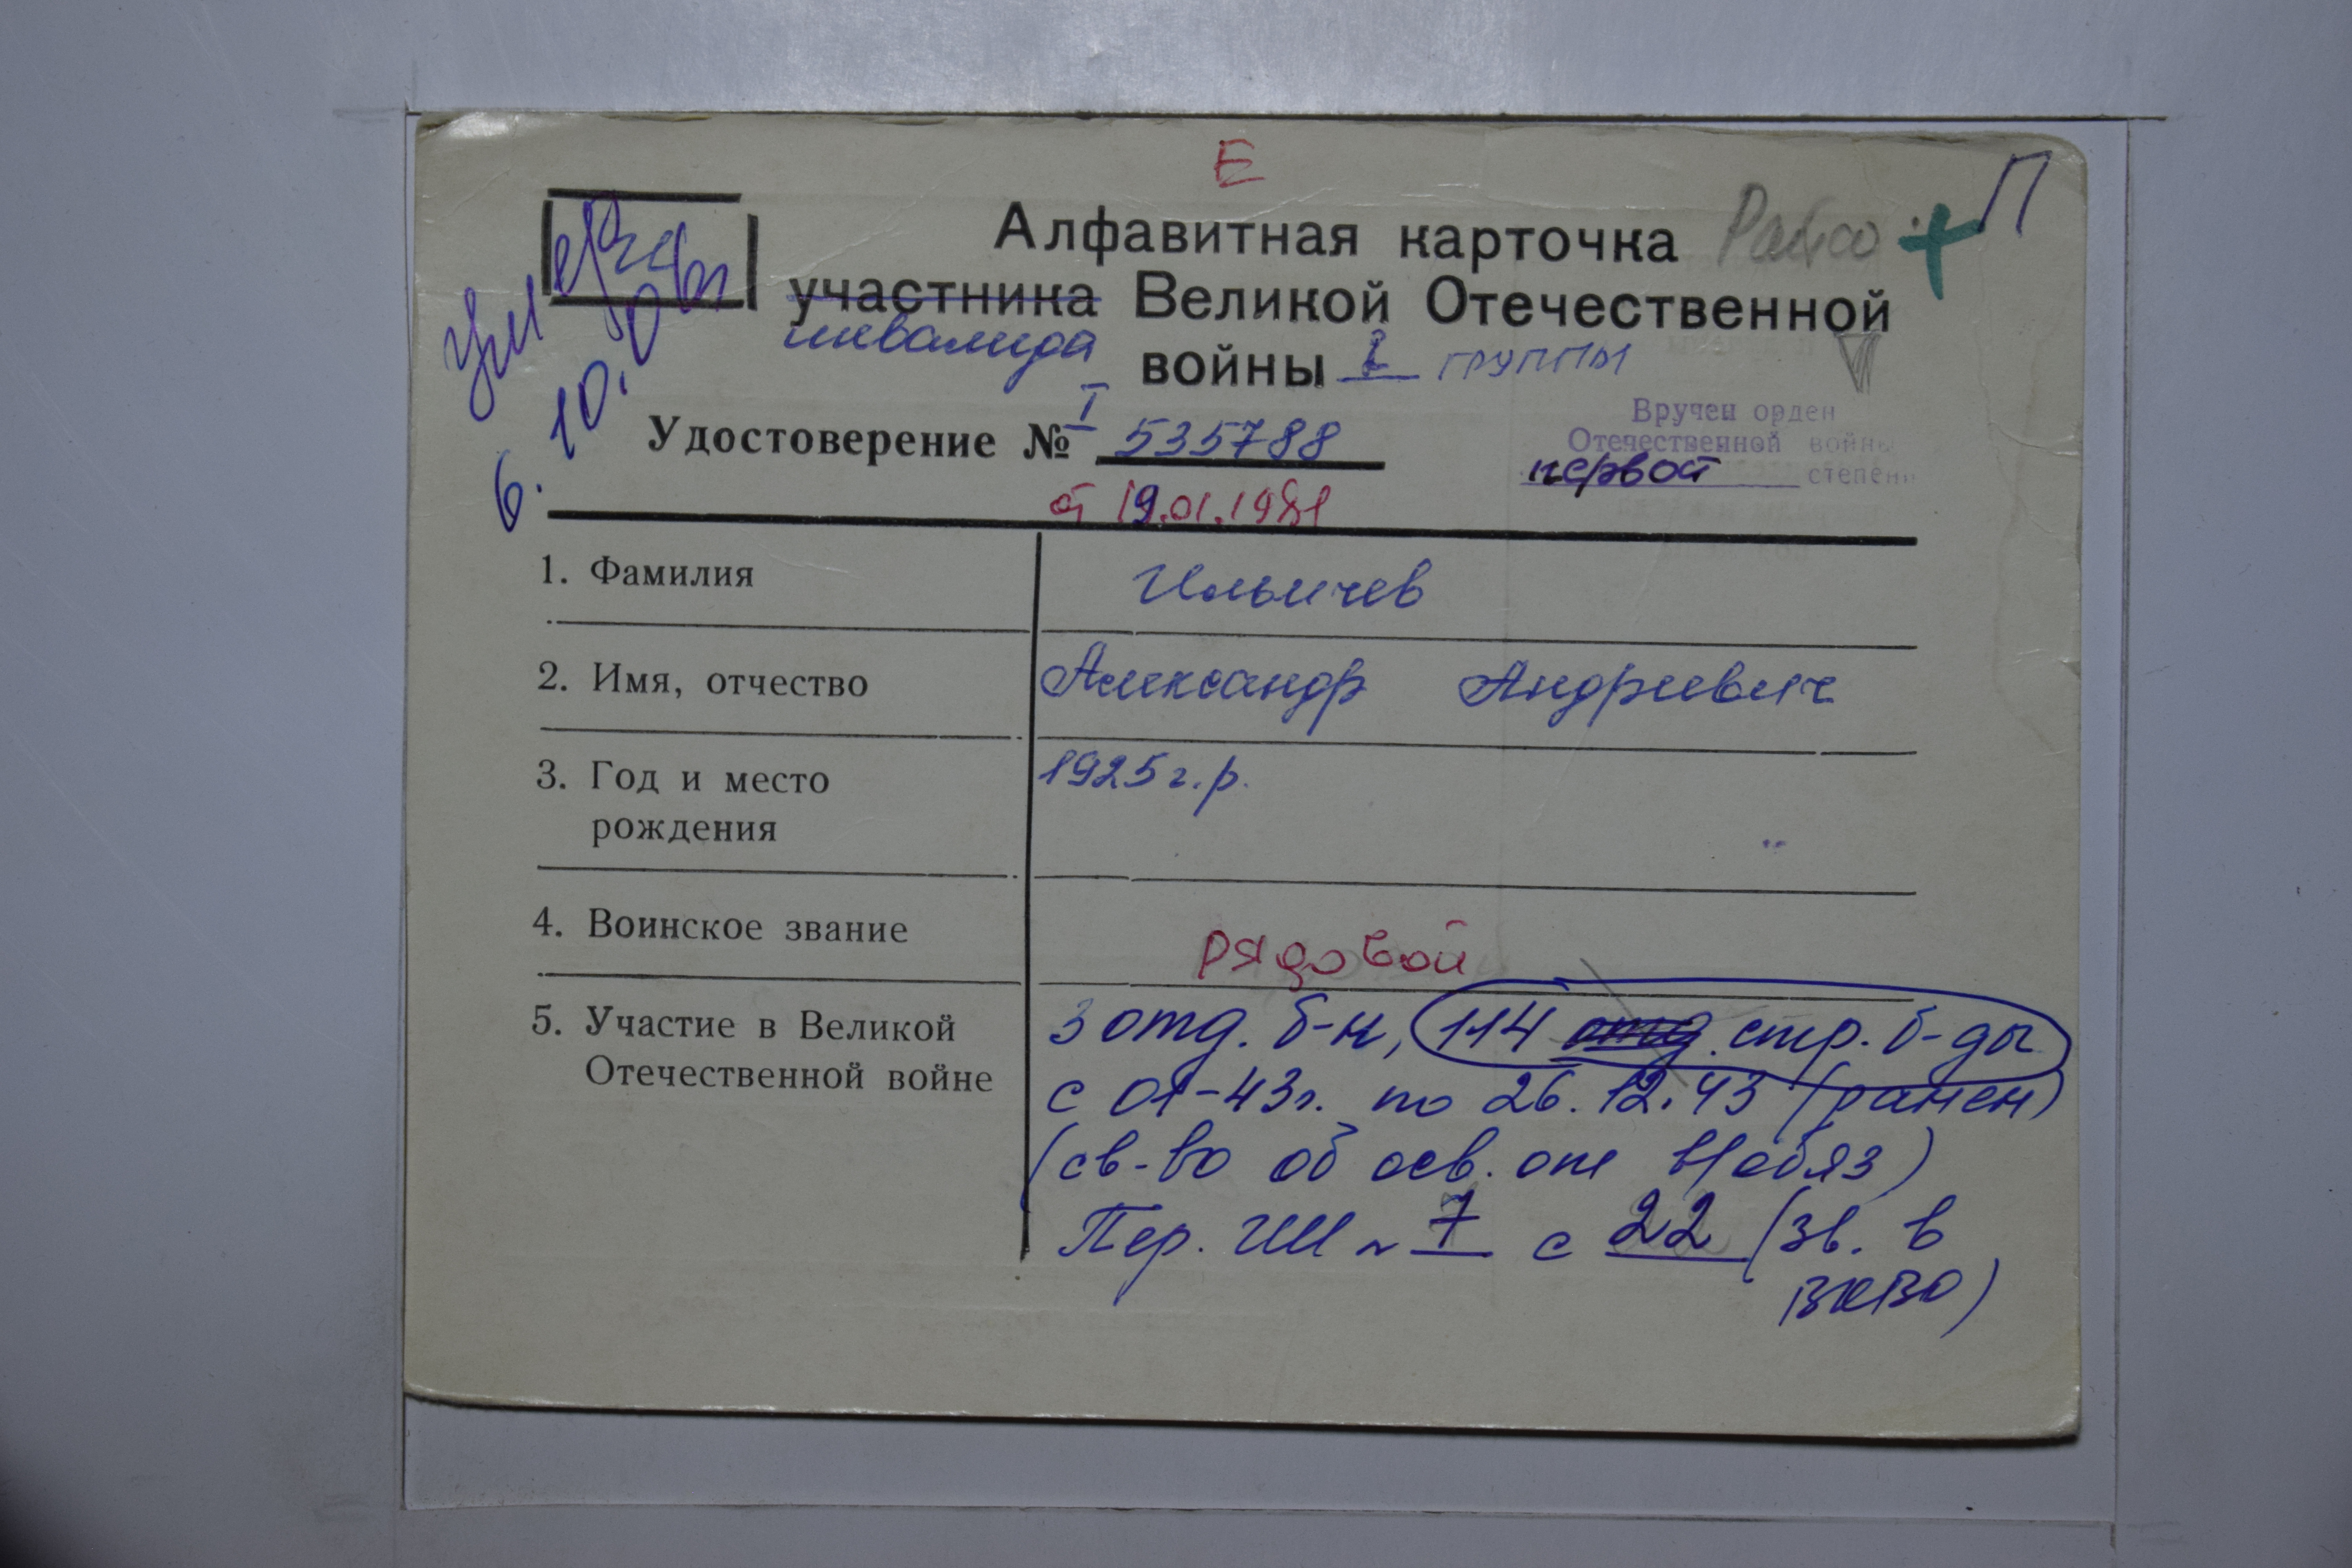 Е
П
Алфавитная карточка
участника Великой Отечественной
инвалида войны I группы
Умер
6. 10.
Вручен орден
Отечественной войны
первой степени
Удостоверение № I 535788
от 19.01.1981
1. Фамилия Ильичев
2. Имя, отчество Александр Андреевич
3. Год и место 1925 г.р.
рождения
4. Воинское звание рядовой
5. Участие в Великой 3 отд. б-н, 114 отд. стр. б-ды
Отечественной войне с 01-43г. по 26.12.43 (ранен)
(св-во об осв. от в/обяз)
Пер. ГШ № 7 с 22 (зв. в